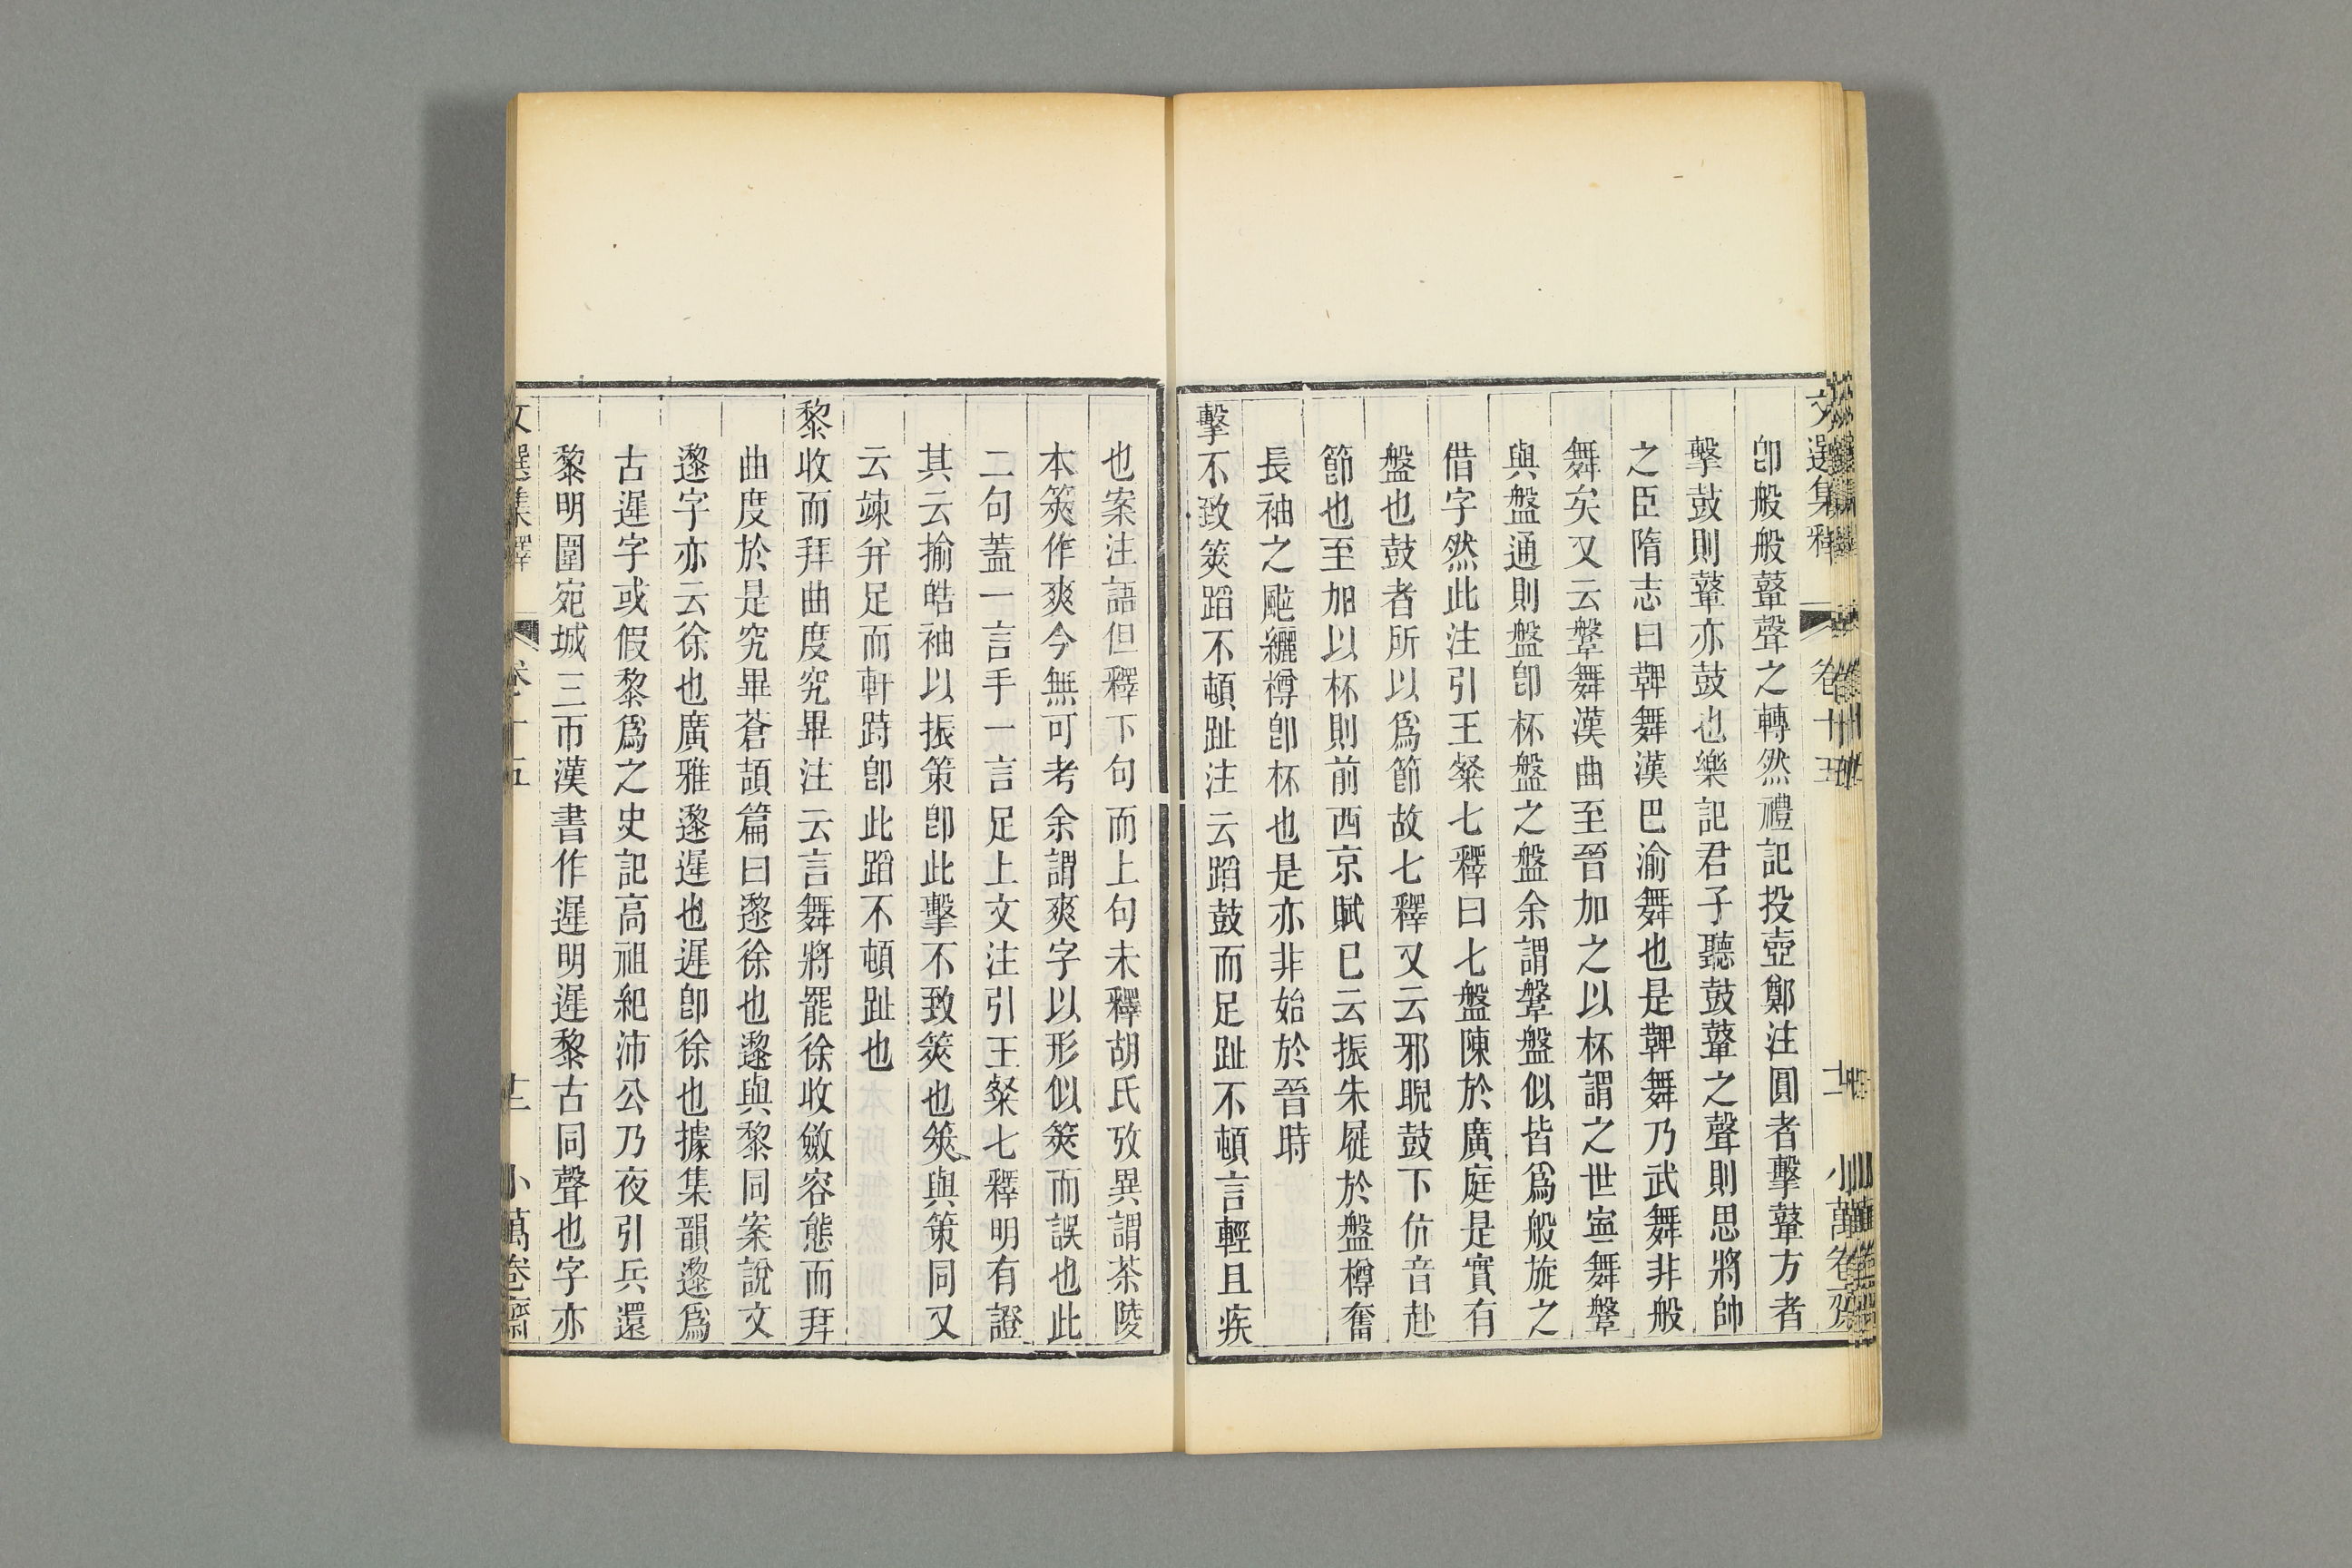 文選集釋 卷十五 十一 小萬卷齋
卽般般鼛聲之轉然禮記投壺鄭注圓者擊鼙方者
擊鼓則鼙亦鼓也樂記君子聽鼓鼙之聲則思將帥
之臣隋志曰鞞舞漢巴渝舞也是鞞舞乃武舞非般
舞矣又云鞶舞漢曲至晉加之以杯謂之世寍舞鞶
與盤通則盤卽杯盤之盤余謂鞶盤似皆爲般旋之
借字然此注引王粲七釋曰七盤陳於廣庭是實有
盤也鼓者所以爲節故七釋又云邪睨鼓下伉音赴
節也至加以杯則前西京賦已云振朱屣於盤樽奮
長袖之颯纚樽卽杯也是亦非始於晉時
擊不致筴蹈不頓趾注云蹈鼓而足趾不頓言輕且疾
也案注語但釋下句而上句未釋胡氏攷異謂茶陵
本筴作爽今無可考余謂爽字以形似筴而誤也此
二句蓋一言手一言足上文注引王粲七釋明有證
其云揄皓袖以振策卽此擊不致筴也筴與策同又
云竦幷足而軒跱卽此蹈不頓趾也
黎收而拜曲度究畢注云言舞將罷徐收斂容態而拜
曲度於是究畢蒼頡篇曰邌徐也邌與黎同案說文
邌字亦云徐也廣雅邌遲也遲卽徐也據集韻邌爲
古遲字或假黎爲之史記高祖紀沛公乃夜引兵還
黎明圍宛城三帀漢書作遲明遲黎古同聲也字亦
文選集釋 卷十五 十二 小萬卷齋